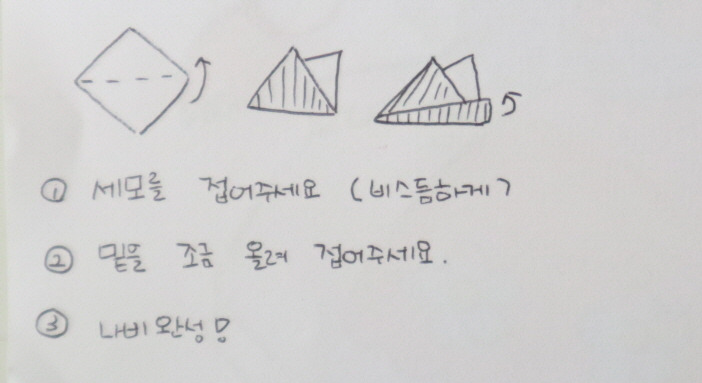 ① 세모를 접어주세요 (비스듬하게)
② 밑을 조금 올려 접어주세요.
③ 나비완성!